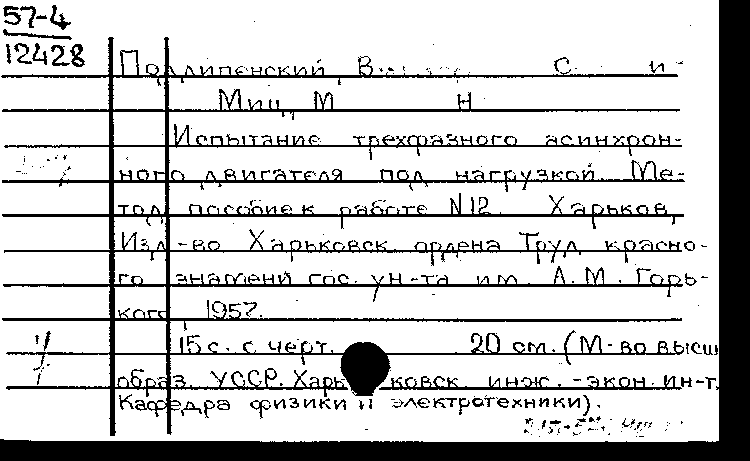 57-4
12428
Подлипенский, В С. и
Миц, М Н
Испытание трехфазного асинхрон-
ного двигателя под нагрузкой. Ме-
тод. пособие к работе N 12. Харьков,
Изд-во Харьковск. ордена Труд. красно-
го знамени гос. ун-та им. А.М. Горь-
кого, 1957.
15 с. с черт. 20 см. (М-во высш
образ. УССР. Харьковск. инж.-экон. ин-т.
Кафедра физики и электротехники).